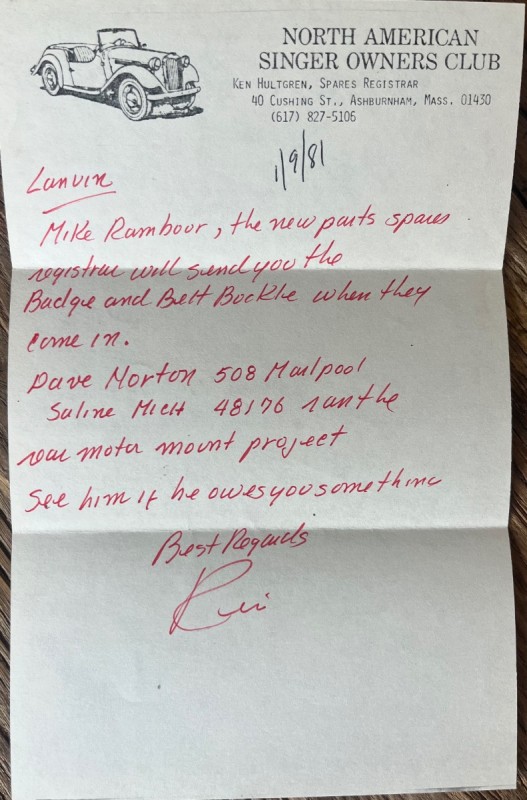 NORTH AMERICAN
SINGER OWNERS CLUB
KEN HULTGREN, SPARES REGISTRAR
40 CUSHING ST., ASHBURNHAM, MASS. 01430
(617) 827-5106
1/9/81
Mike Rambour, the new parts spares
registrar will send you the
Badge and Belt Buckle when they
come in.
Dave Morton 508 Marlpool
Saline Mich 48176 ran the
rear motor mount project
See him if he owes you something
Best Regards